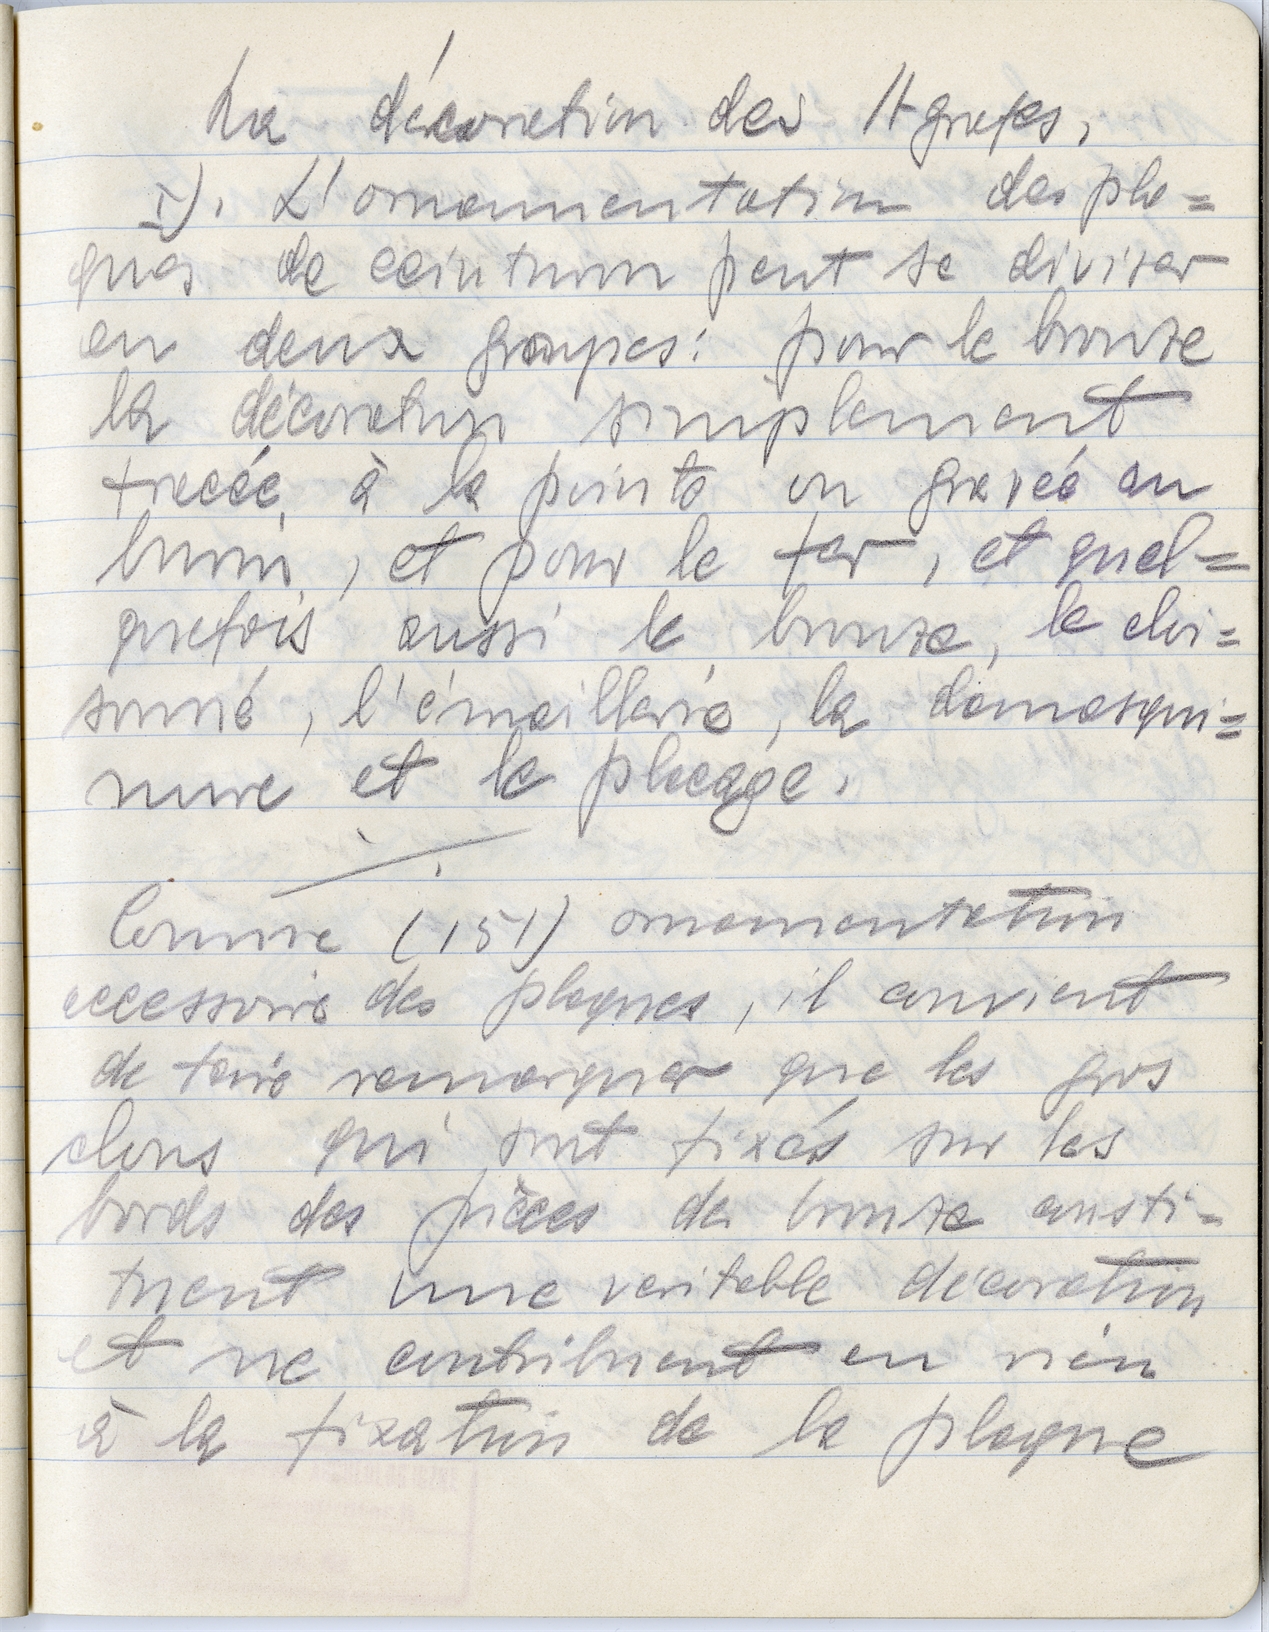 La décoration des Agrafes.
I). L'ornementation des pla=
ques de ceinturon peut se diviser
en deux groupes: pour le bronze
la décoration simplement
tracée à la pointe ou gravée au
burin, et pour le fer, et quel=
quefois aussi le bronze, le cloi=
sonné, l'émaillerie, la damasqui=
nure et le placage.
Comme (151) ornementation
accessoire des plaques, il convient
de faire remarquer que les gros
clous qui sont fixés sur les
bords des pièces de bronze consti=
tuent une veritable décoration
et ne contribuent en rien
à la fixation de la plaque